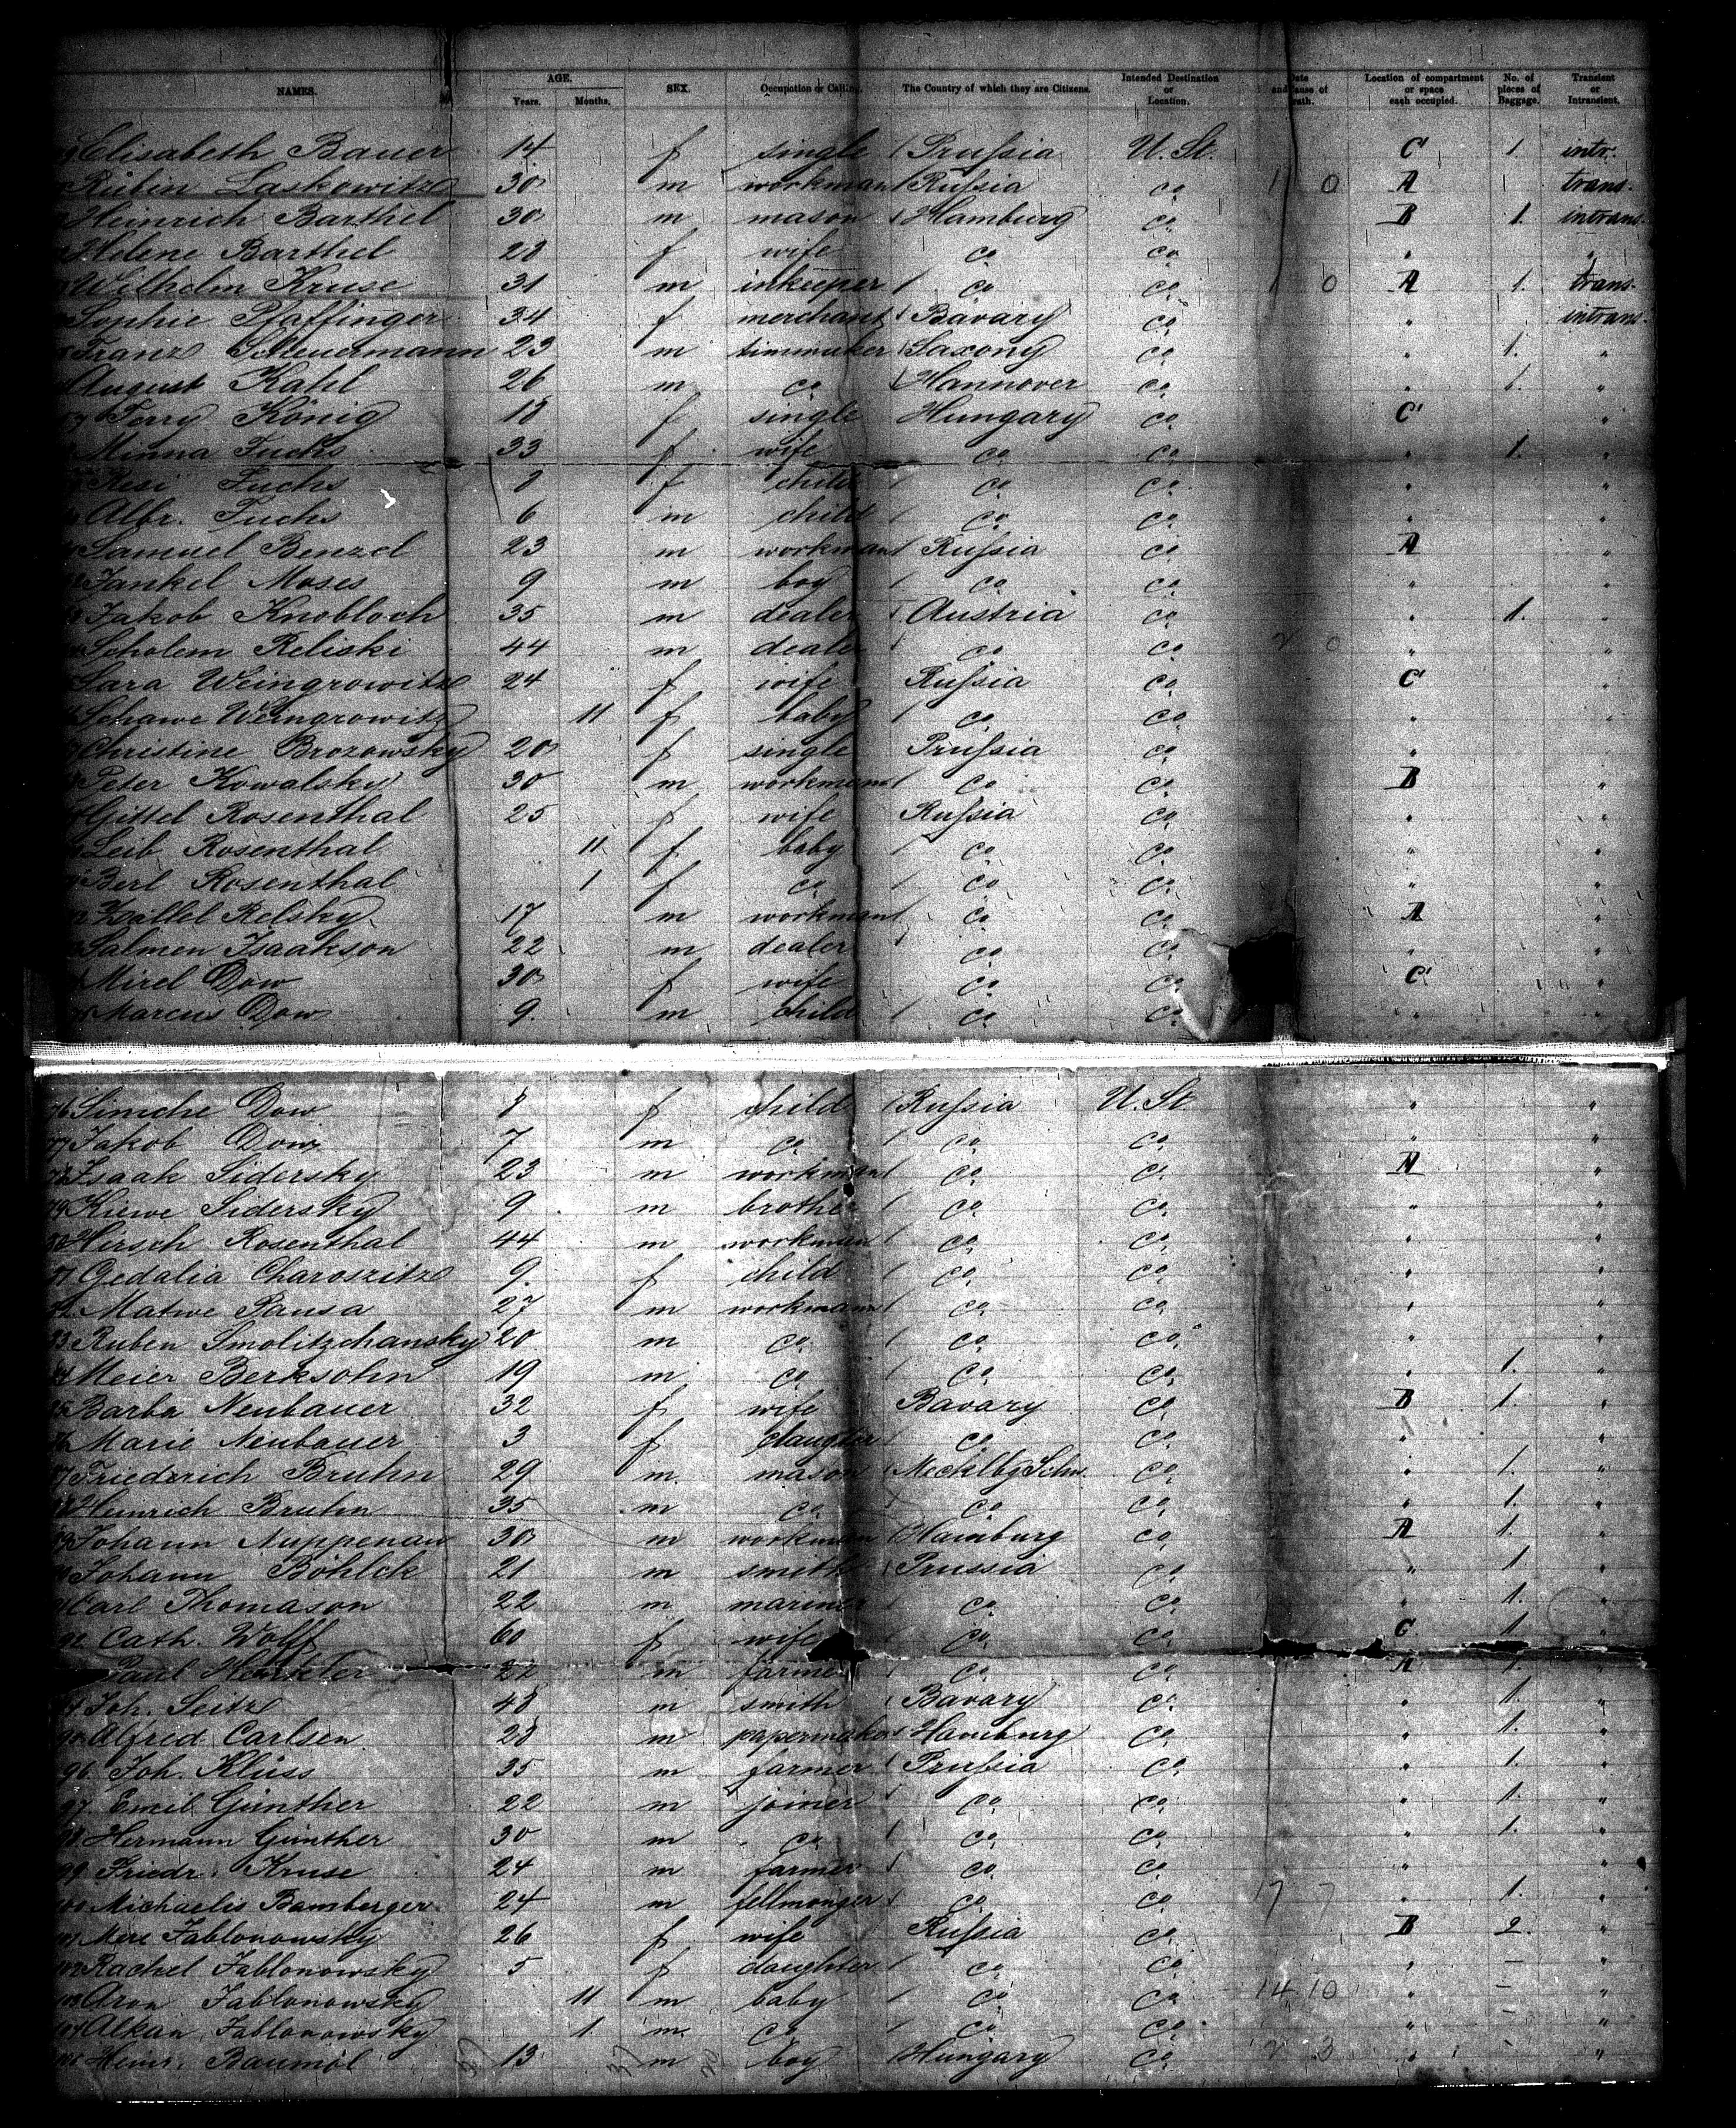 NAMES. AGE. Years. Months. SEX. Occupation or Calling. The Country of which they are Citizens. Intended Destination or Location. Date and Cause of Death. Location of compartment or space each occupied. No. of pieces of Baggage. Transient or Intransient.
Elisabeth Bauer 14 f single Prussia U. St. C 1. intr.
Rubin Laskowitz 30 m workman Russia co 1 0 A trans.
Heinrich Barthel 30 m mason Hamburg co B 1. intrans.
Helene Barthel 28 f wife co co " "
Wilhelm Kruse 31 m inkeeper co co 1 0 A 1. trans.
Sophie Pfaffinger 34 f merchant Bavary co " intrans.
Franz Scheuermann 23 m timmuker Saxony co " 1. "
August Kahl 26 m co Hannover co " 1. "
Terry König 18 f single Hungary co C "
Minna Fuchs 33 f wife co co " 1. "
Resi Fuchs 8 f child co co " "
Albr. Fuchs 6 m child co co " "
Samuel Benzel 23 m workman Russia co A "
Jankel Moses 9 m boy co co " "
Jakob Knobloch 35 m dealer Austria co " 1. "
Scholem Reliski 44 m dealer co co 2 0 " "
Sara Weingrowitz 24 f wife Russia co C "
Schawe Weingrowitz 11 f baby co co " "
Christine Brozowsky 20 f single Prussia co " "
Peter Kowalsky 30 m workman co co B "
Gittel Rosenthal 25 f wife Russia co " "
Leib Rosenthal 11 f baby co co " "
Berl Rosenthal 1 f co co co " "
Relsky 17 m workman co co A "
Salmen Isaakson 22 m dealer co co " "
Mirel Dow 30 f wife co co C "
Marcus Dow 9 m child co co " "
76 Simche Dow 8 f child Russia U. St " "
77 Jakob Dow 7 m co co co " "
78 Isaak Sidersky 23 m workman co co A "
79 Kiewe Sidersky 9 m brother co co " "
80 Hirsch Rosenthal 44 m workman co co " "
81 Gedalia Charoszitz 9 f child co co " "
82 Matwe Pausa 27 m workman co co " "
83 Ruben Smolitzchansky 20 m co co co " "
84 Meier Berksohn 19 m co co co " 1. "
85 Barba Neubauer 32 f wife Bavary co B 1. "
86 Marie Neubauer 3 f daughter co co " "
87 Friedrich Bruhn 29 m mason Mecklbg Schw. co " 1. "
88 Heinrich Bruhn 35 m co co co " 1. "
89 Johann Nuppenau 30 m workman Hamburg co A 1. "
90 Johann Böhlck 21 m smith Prussia co " 1. "
91 Carl Thomason 22 m mariner co co " 1. "
92 Cath. Wolff 60 f wife co co C 1. "
Paul 22 m farmer co co A 1. "
94 Joh. Seitz 48 m smith Bavary co " 1. "
95 Alfred Carlsen 28 m papermaker Hamburg co " 1. "
96 Joh. Klüss 25 m farmer Prussia co " 1. "
97. Emil Günther 22 m joiner co co " 1. "
98. Hermann Günther 30 m co co co " 1. "
99 Friedr. Kruse 24 m farmer co co " "
100 Michaelis Bamberger 24 m fellmonger co co 17 7 " 1. "
101 Mere Jablonowsky 26 f wife Russia co B 2. "
102 Rachel Jablonowsky 5 f daughter co co " – "
103 Aron Jablonowsky 11 m baby co co 14 10 " – "
104 Alkan Jablonowsky 1 m co co co " – "
105 Heinr. Baumöl 13 m boy Hungary co 2 3 " – "